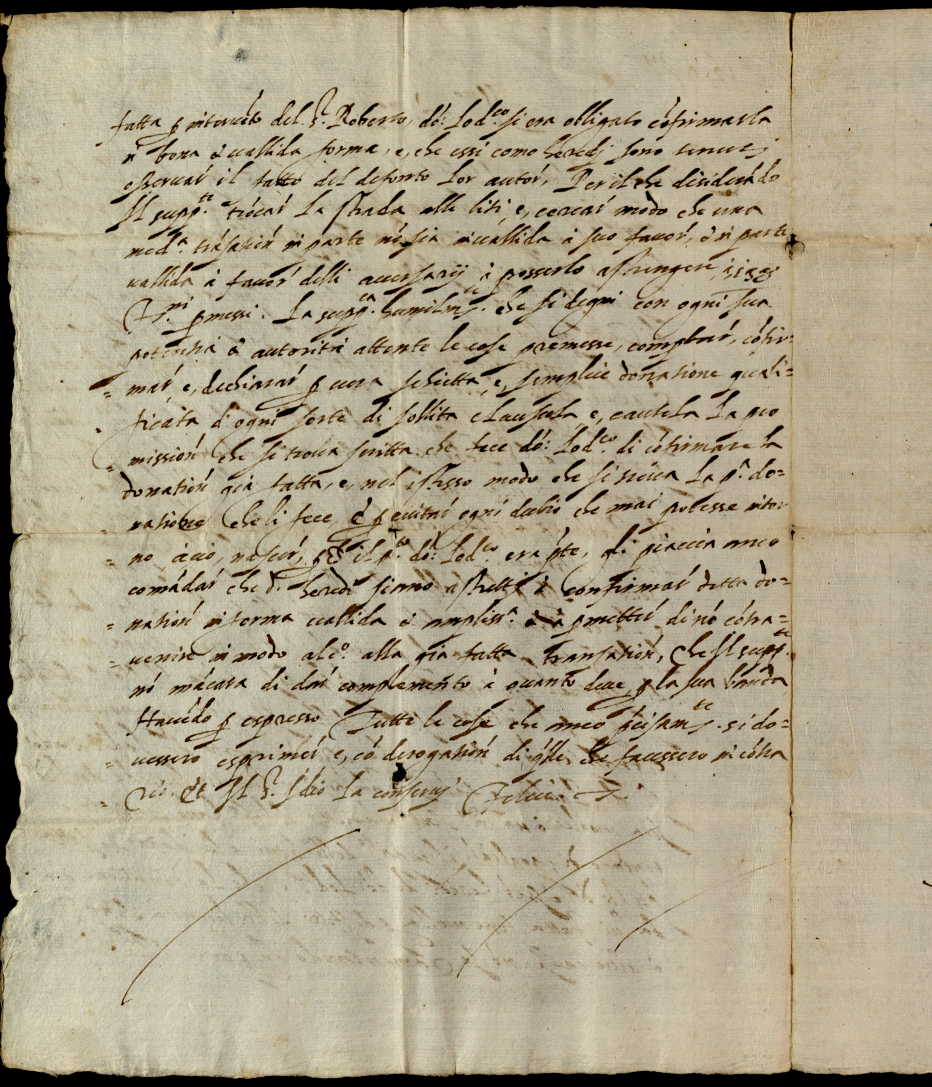 fatta p intervēto del S.r Roberto, dō: Lod.co si era obligato cōfirmarla
ī bona è vallida forma, e, che essi come heredi sono tenuti
osservar il fatto del defonto lor autor, Per il che desiderādo
Il supp.te trōcar la strada alle liti, e, cercar modo che una
med.a trāsatiō in parte nō sia invallida à suo favor, è in parte
vallida à favor delli aversarij à posserlo astringere
pmessi. La supp.ca humilm.te che si degni con ogni sua
potentia è autorità attente le cose premesse, comprobar, cōfir=
= mar, e, dechiarar p vera schietta, e, semplice donatione quali=
- ficata d'ogni sorte di sollita clausula e, cautela la pro
- missiōn che si trova scritta che fece dō: Lod.co di cōfirmare la
donatiōn già fatta, e, nel istesso modo che si la p.a do=
- natione che li fece, è p evitar ogni dubio che mai potesse intor
= no à ciò nascer, il p.to dō: Lod.co era, li piaccia anco
= comādar che dī heredi siano astretti à confirmar detta do=
= natiōn in forma vallida è ampliss.a è à pmetter di nō cōtra=
= venire in modo alc.o alla già fatta transatiōn, che Il supp.te
nō mācara di dar complemento à quanto deve p la sua banda
Havēdo p espresso Tutte le cose che anco.te si do=
- vessero esprimer e, cō derogatiōn di qlle che facessero in cōtra
- rio. Et Il S.r Idio la conservi Felice